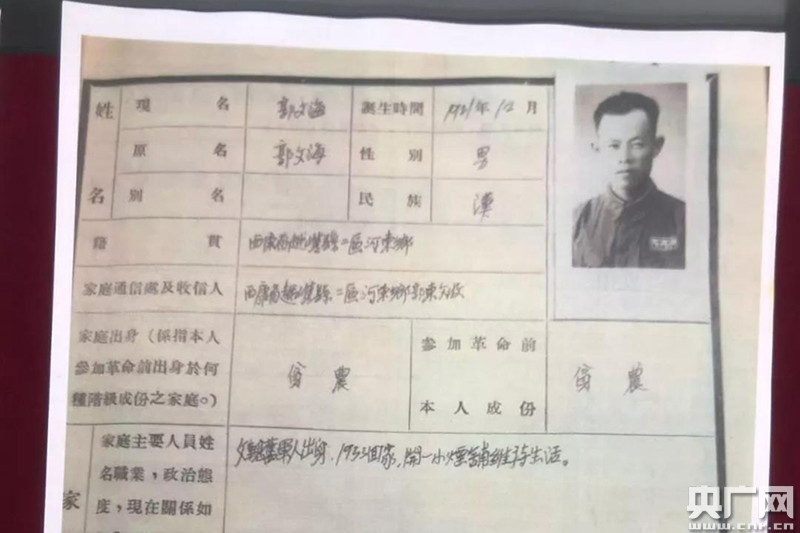 姓名
現名 郭文海 誕生時間 1921年12月
原名 郭文海 性別 男
別名 民族 漢
籍貫 西康省越嶲縣二區河東鄉
家庭通信處及收信人 西康省越嶲縣二區河東鄉郭東
家庭出身(係指本人
參加革命前出身於何
種階級成份之家庭。)
貧農
參加革命前
本人成份
貧農
家庭主要人員姓
名職業,政治態
度,現在關係如
家
舊軍人出身、1933回家,開一小煙舖維持生活。
央广网
www.cnr.cn